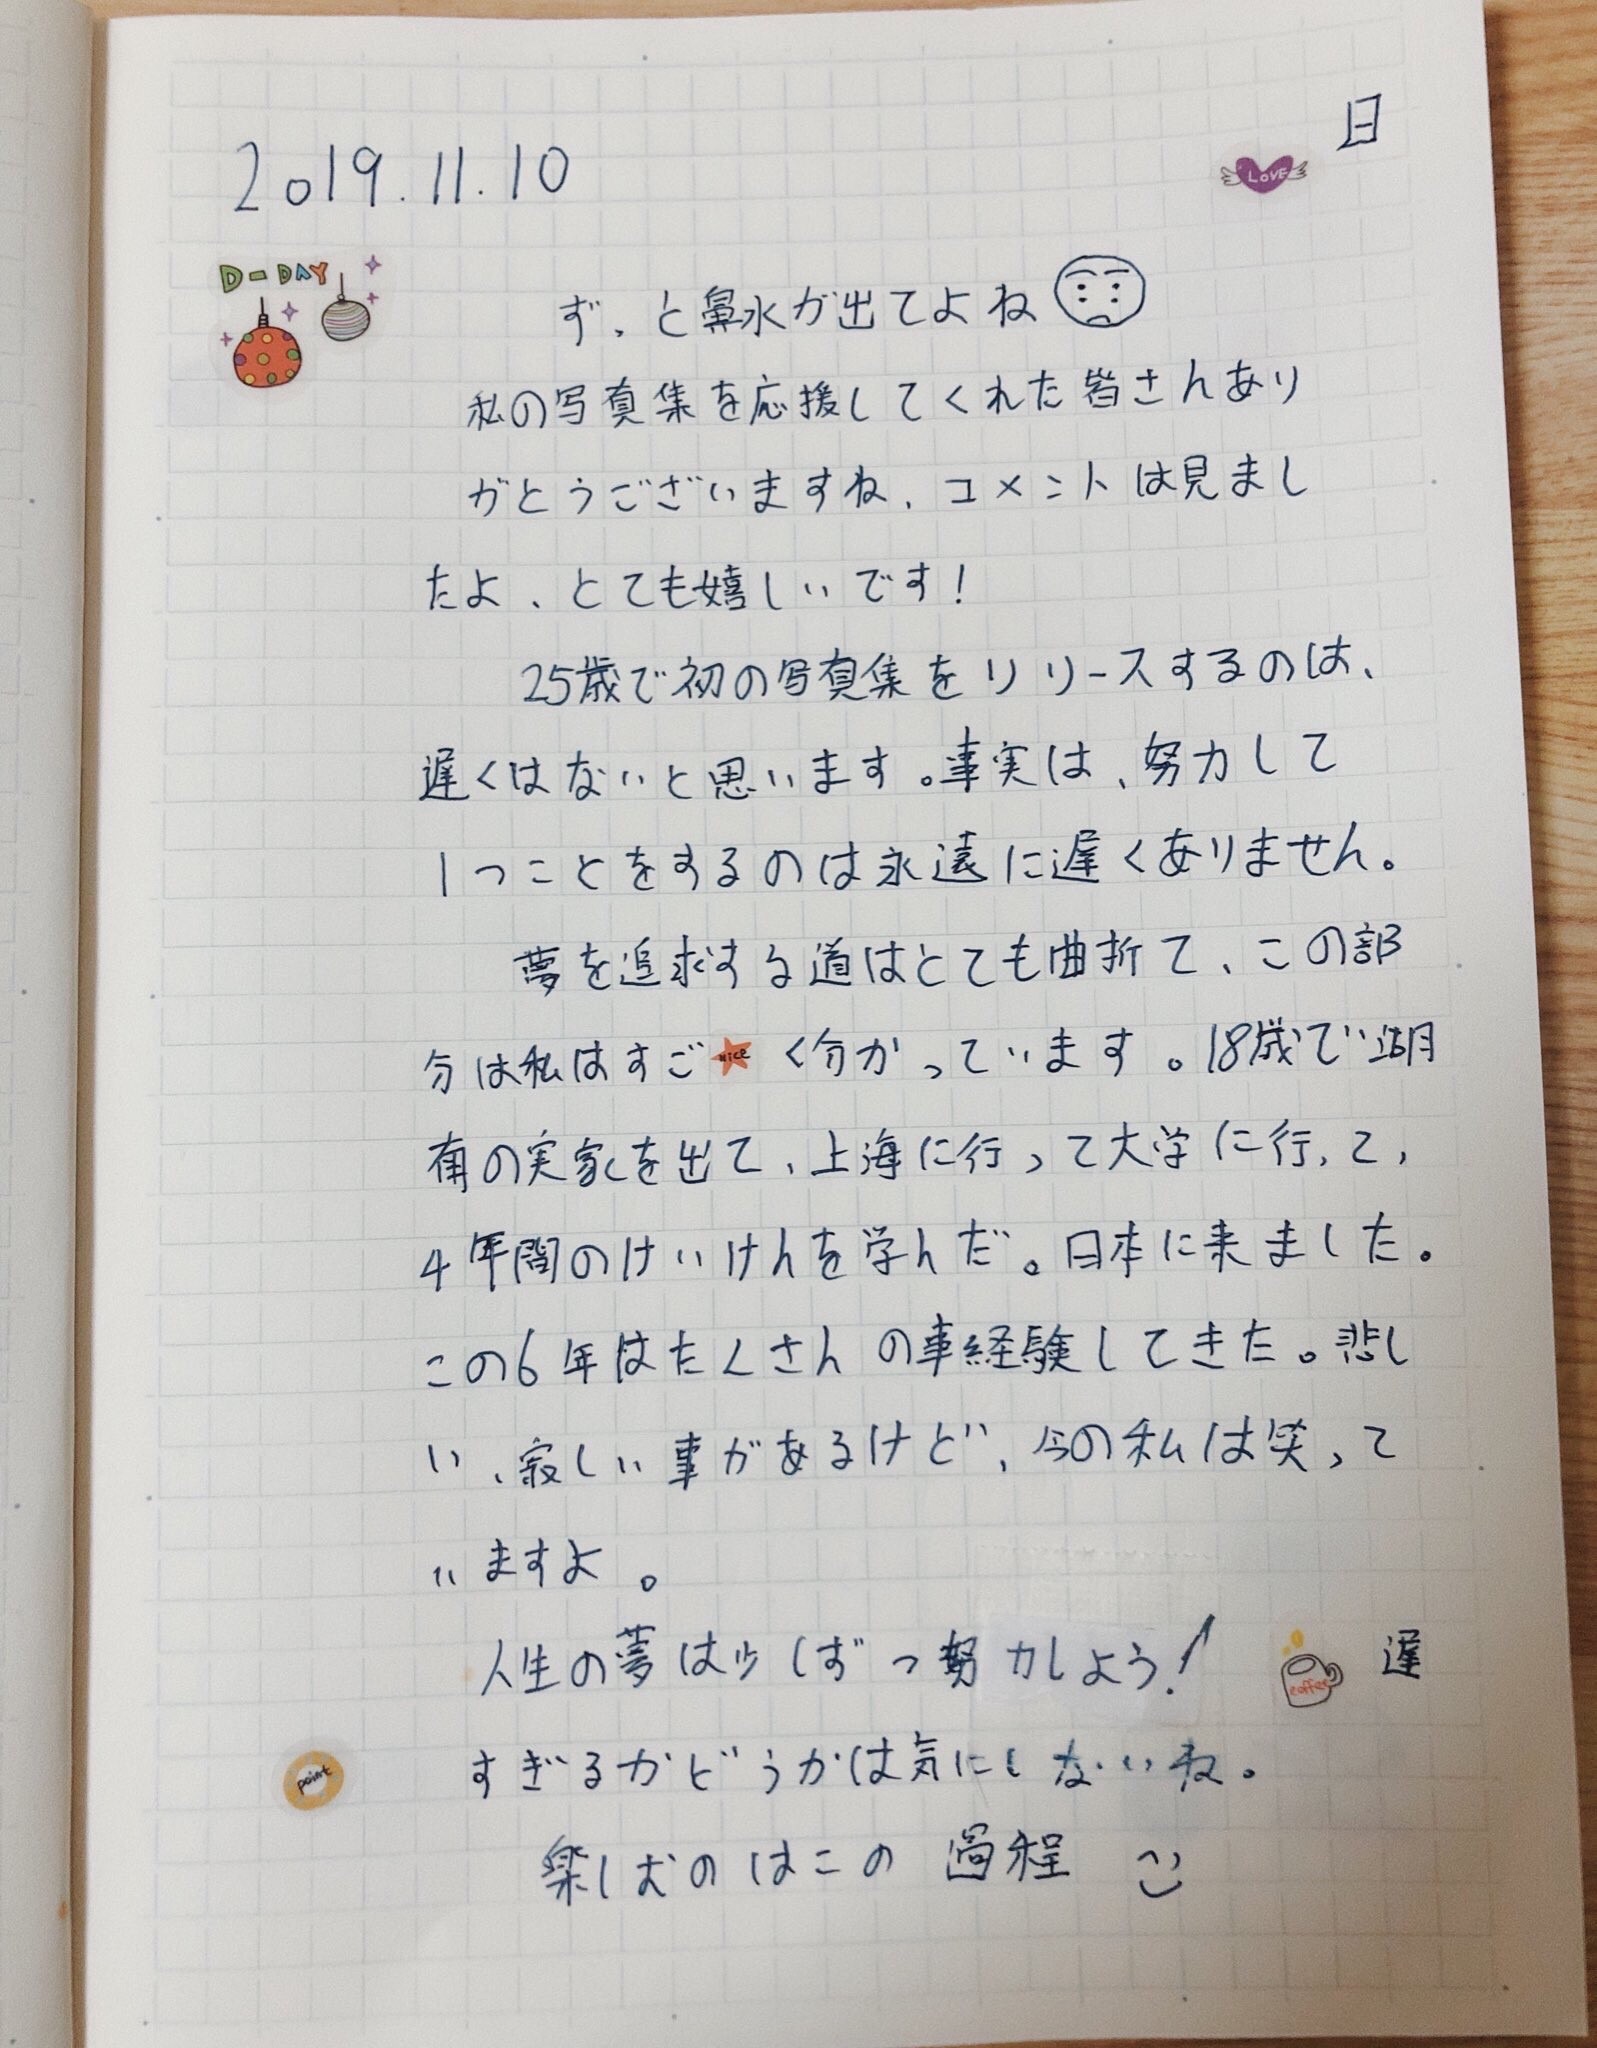 日
2019.11.10
LOVE
D-DAY
ずっと鼻水が出てよね
私の写真集を応援してくれた皆さんあり
がとうございますね、コメントは見まし
たよ、とても嬉しいです!
25歳で初の写真集をリリースするのは、
遅くはないと思います。事実は、努力して
1つことをするのは永遠に遅くありません。
夢を追求する道はとても曲折て、この部
分は私はすご nice く分かっています。18歳で湖
南の実家を出て、上海に行って大学に行って,
4年間のけいけんを学んだ。日本に来ました。
この6年はたくさんの事経験してきた。悲し
い、寂しい事があるけど、今の私は笑って
いますよ。
人生の夢は少しずつ努力しよう! coffee 遅
point すぎるかどうかは気にしないね。
楽しむのはこの過程